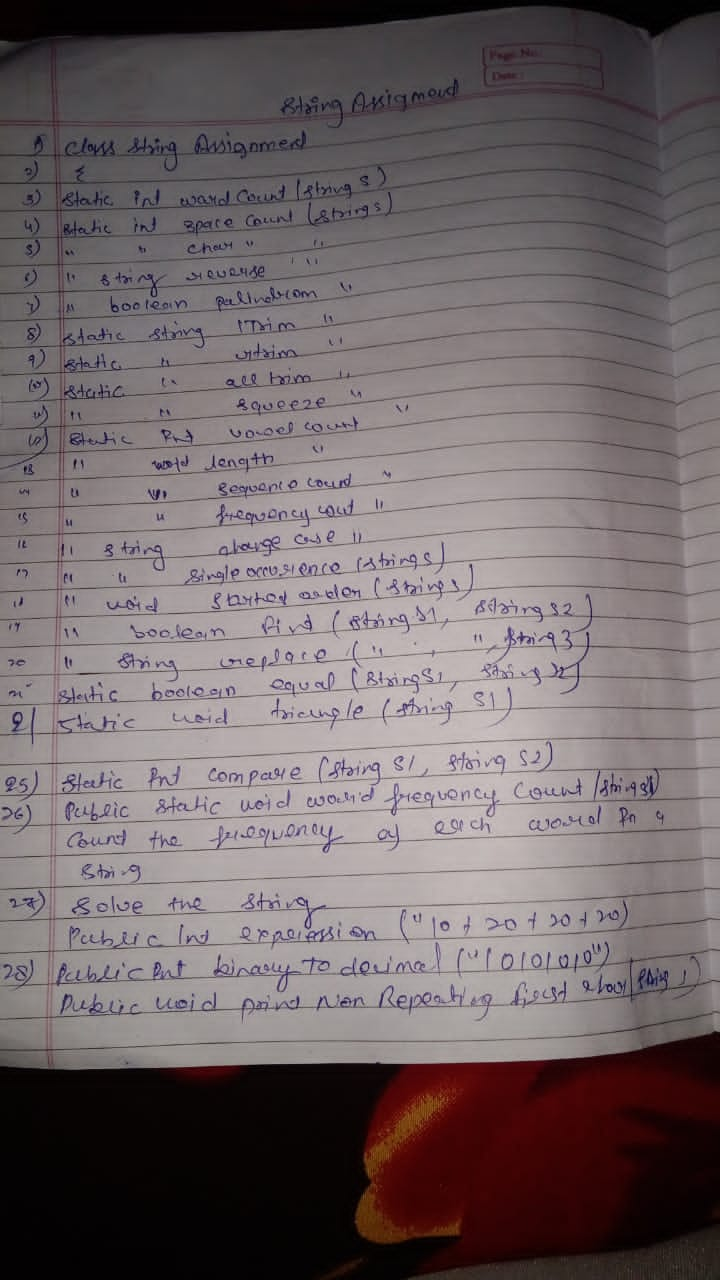 Page No:
Date:
String Assigmend
1) Class String Assignmend
2) {
3) Static int ward Count (String S)
4) Static int space Count (String S)
5) " " Char " "
6) " String reverse " "
7) " boolean palindrom "
8) Static String lTrim "
9) Static " rtrim "
10) Static " all trim "
11) " " squeeze "
12) Static Int vowel count "
13 " word length "
14 " " Sequence count "
15 " " frequency cout "
16 " String change case "
17 " " Single occurience (String S)
18 " void Started order (String S)
19 " boolean find (String S1, String S2)
20 " String replace ( " , ", String 3)
21 Static boolean equal (String S1, String S2)
21 Static void triangle (String S1)
25) Static Int compare (String S1, String S2)
26) Public Static void word frequency Count (String S1)
Count the frequency of each word In a
String
27) Solve the String
Public Int experession ("10 + 20 + 20 + 20)
28) Public Int binary To decimal ("1010101 0")
Public void print Non Repeating first char (String )